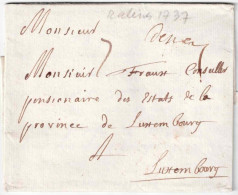 1737
Monsieur
Monsieur Faust Conseiller
pensionaire des Estats de la
province de Luxembourg
A
Luxembourg